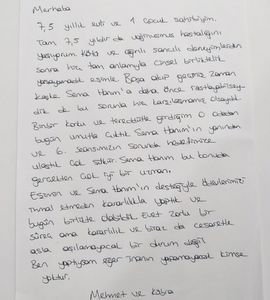 Merhaba
7,5 yıllık evli ve 1 çocuk sahibiyim.
Tam 7,5 yıldır da vajinismus hastalığını
yaşıyorum kötü ve ağrılı sancılı deneyimlerden
sonra hiç tam anlamıyla cinsel birliktelik
yaşayamadık eşimle. Boşa akıp geçmiş zaman
keşke Sema Hanım'a daha önce rastlayabilsey-
dik de bu sorunla hiç karşılaşmamış olsaydık.
Binbir korku ve tereddütle girdiğim O odadan
bugün umutla çıktık Sema Hanım'ın yanından
ve 6. seansımızın sonunda hedefimize
ulaştık çok şükür. Sema Hanım bu konuda
gerçekten çok iyi bir uzman.
Eşimin ve Sema Hanım'ın desteğiyle ödevlerimizi
ihmal etmeden kararlılıkla yaptık ve
bugün birlikte olabildik. Evet zorlu bir
süreç ama kararlılık ve biraz da cesaretle
asla aşılamayacak bir durum değil
Ben yaptıysam eğer inanın yapamayacak kimse
yoktur.
Mehmet ve Kübra